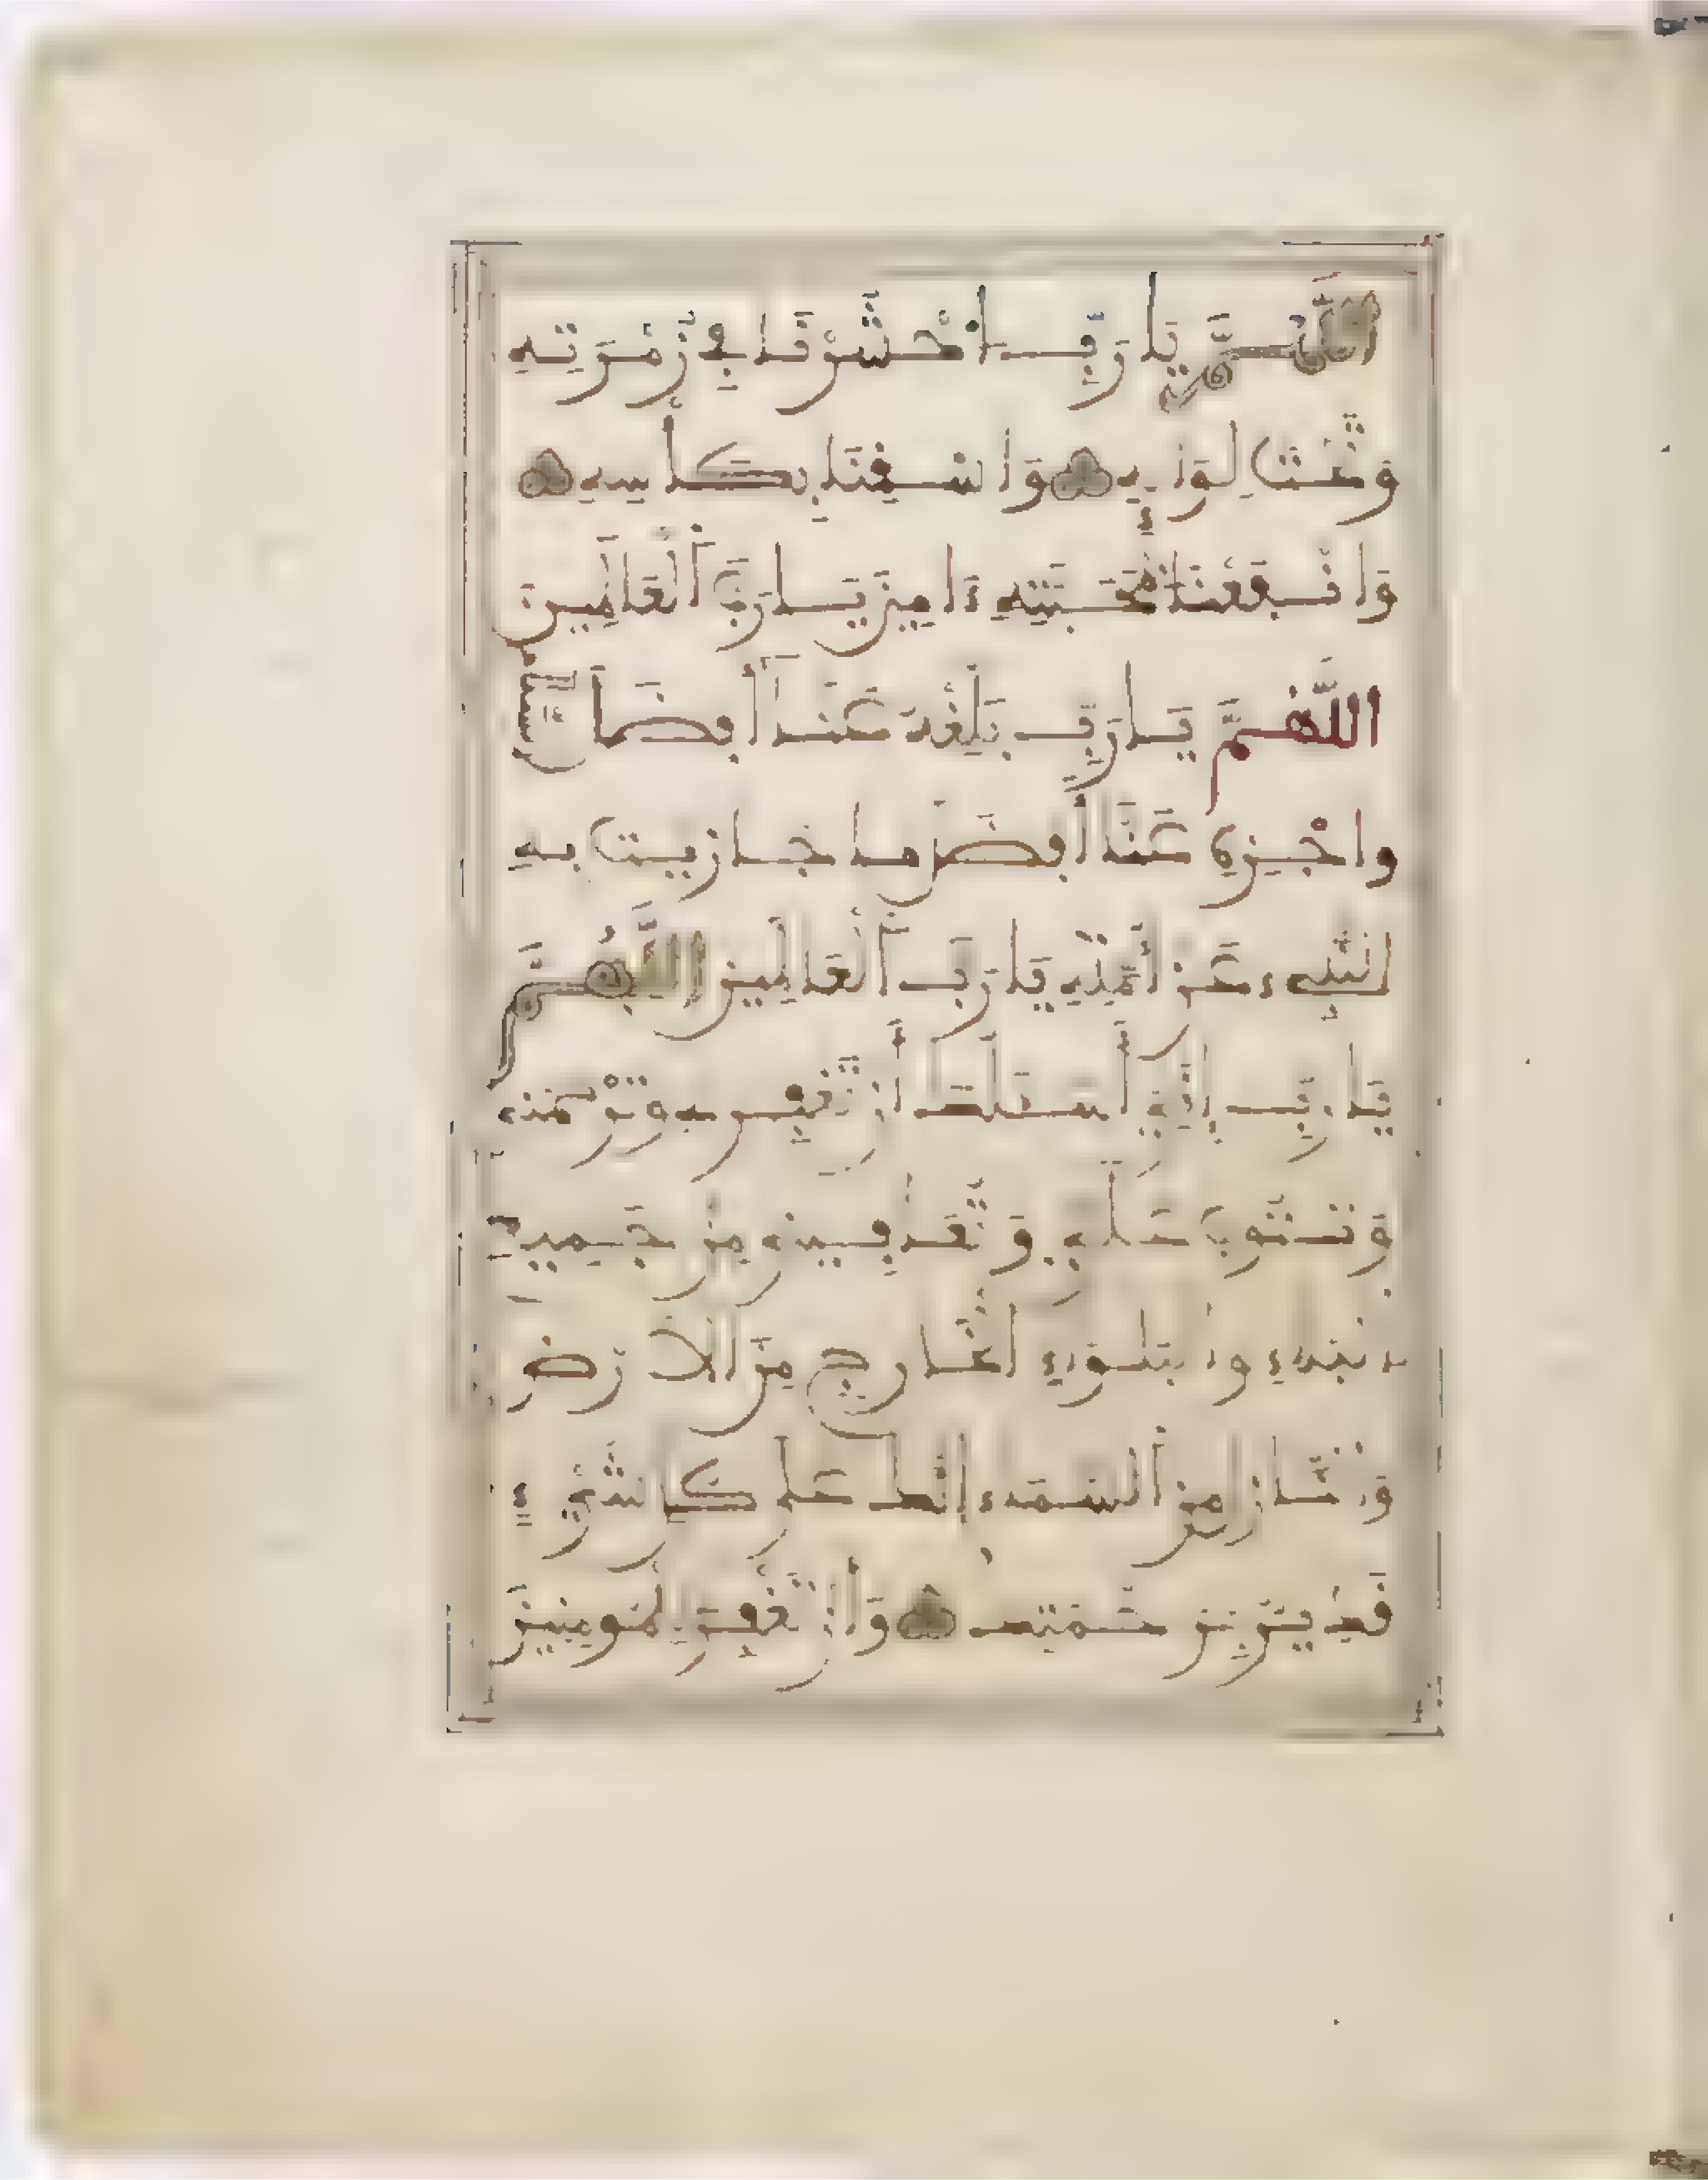 اللَّهُمَّ يَا رَبِّ احْشُرْنَا فِي زُمْرَتِهِ
وَتَحْتَ لِوَائِهِ وَاسْقِنَا بِكَأْسِهِ
وَانْفَعْنَا بِمَحَبَّتِهِ ءَامِينَ يَا رَبَّ الْعَالَمِين
اللَّهُمَّ يَا رَبِّ بَلِّغْهُ عَنَّا أَفْضَلَ السَّلَام
واجْزِهِ عَنَّا أَفْضَلَ ما جَازيتَ بِهِ
النَّبِيءَ عَنْ أُمَّتِهِ يَا رَبَّ الْعَالَمِينَ اللَّهُمَّ
يَا رَبِّ إِنِّي أَسْـَٔلُكَ أَن تَغْفِرَ لِي وَتَرْحَمَنِي
وَتَتُوبَ عَلَيَّ وَتُعَافِيَنِي مِنْ جَمِيعِ
الْبَلَاءِ وَالْبَلْوَاءِ الْخَارِجِ مِنَ الْأَرْضِ
وَالنَّازِلِ مِنَ السَّمَاءِ إِنَّكَ عَلَى كُلِّ شَيْءٍ
قَدِيرٌ بِرَحْمَتِكَ وَأَن تَغْفِرَ لِلْمُومِنِينَ